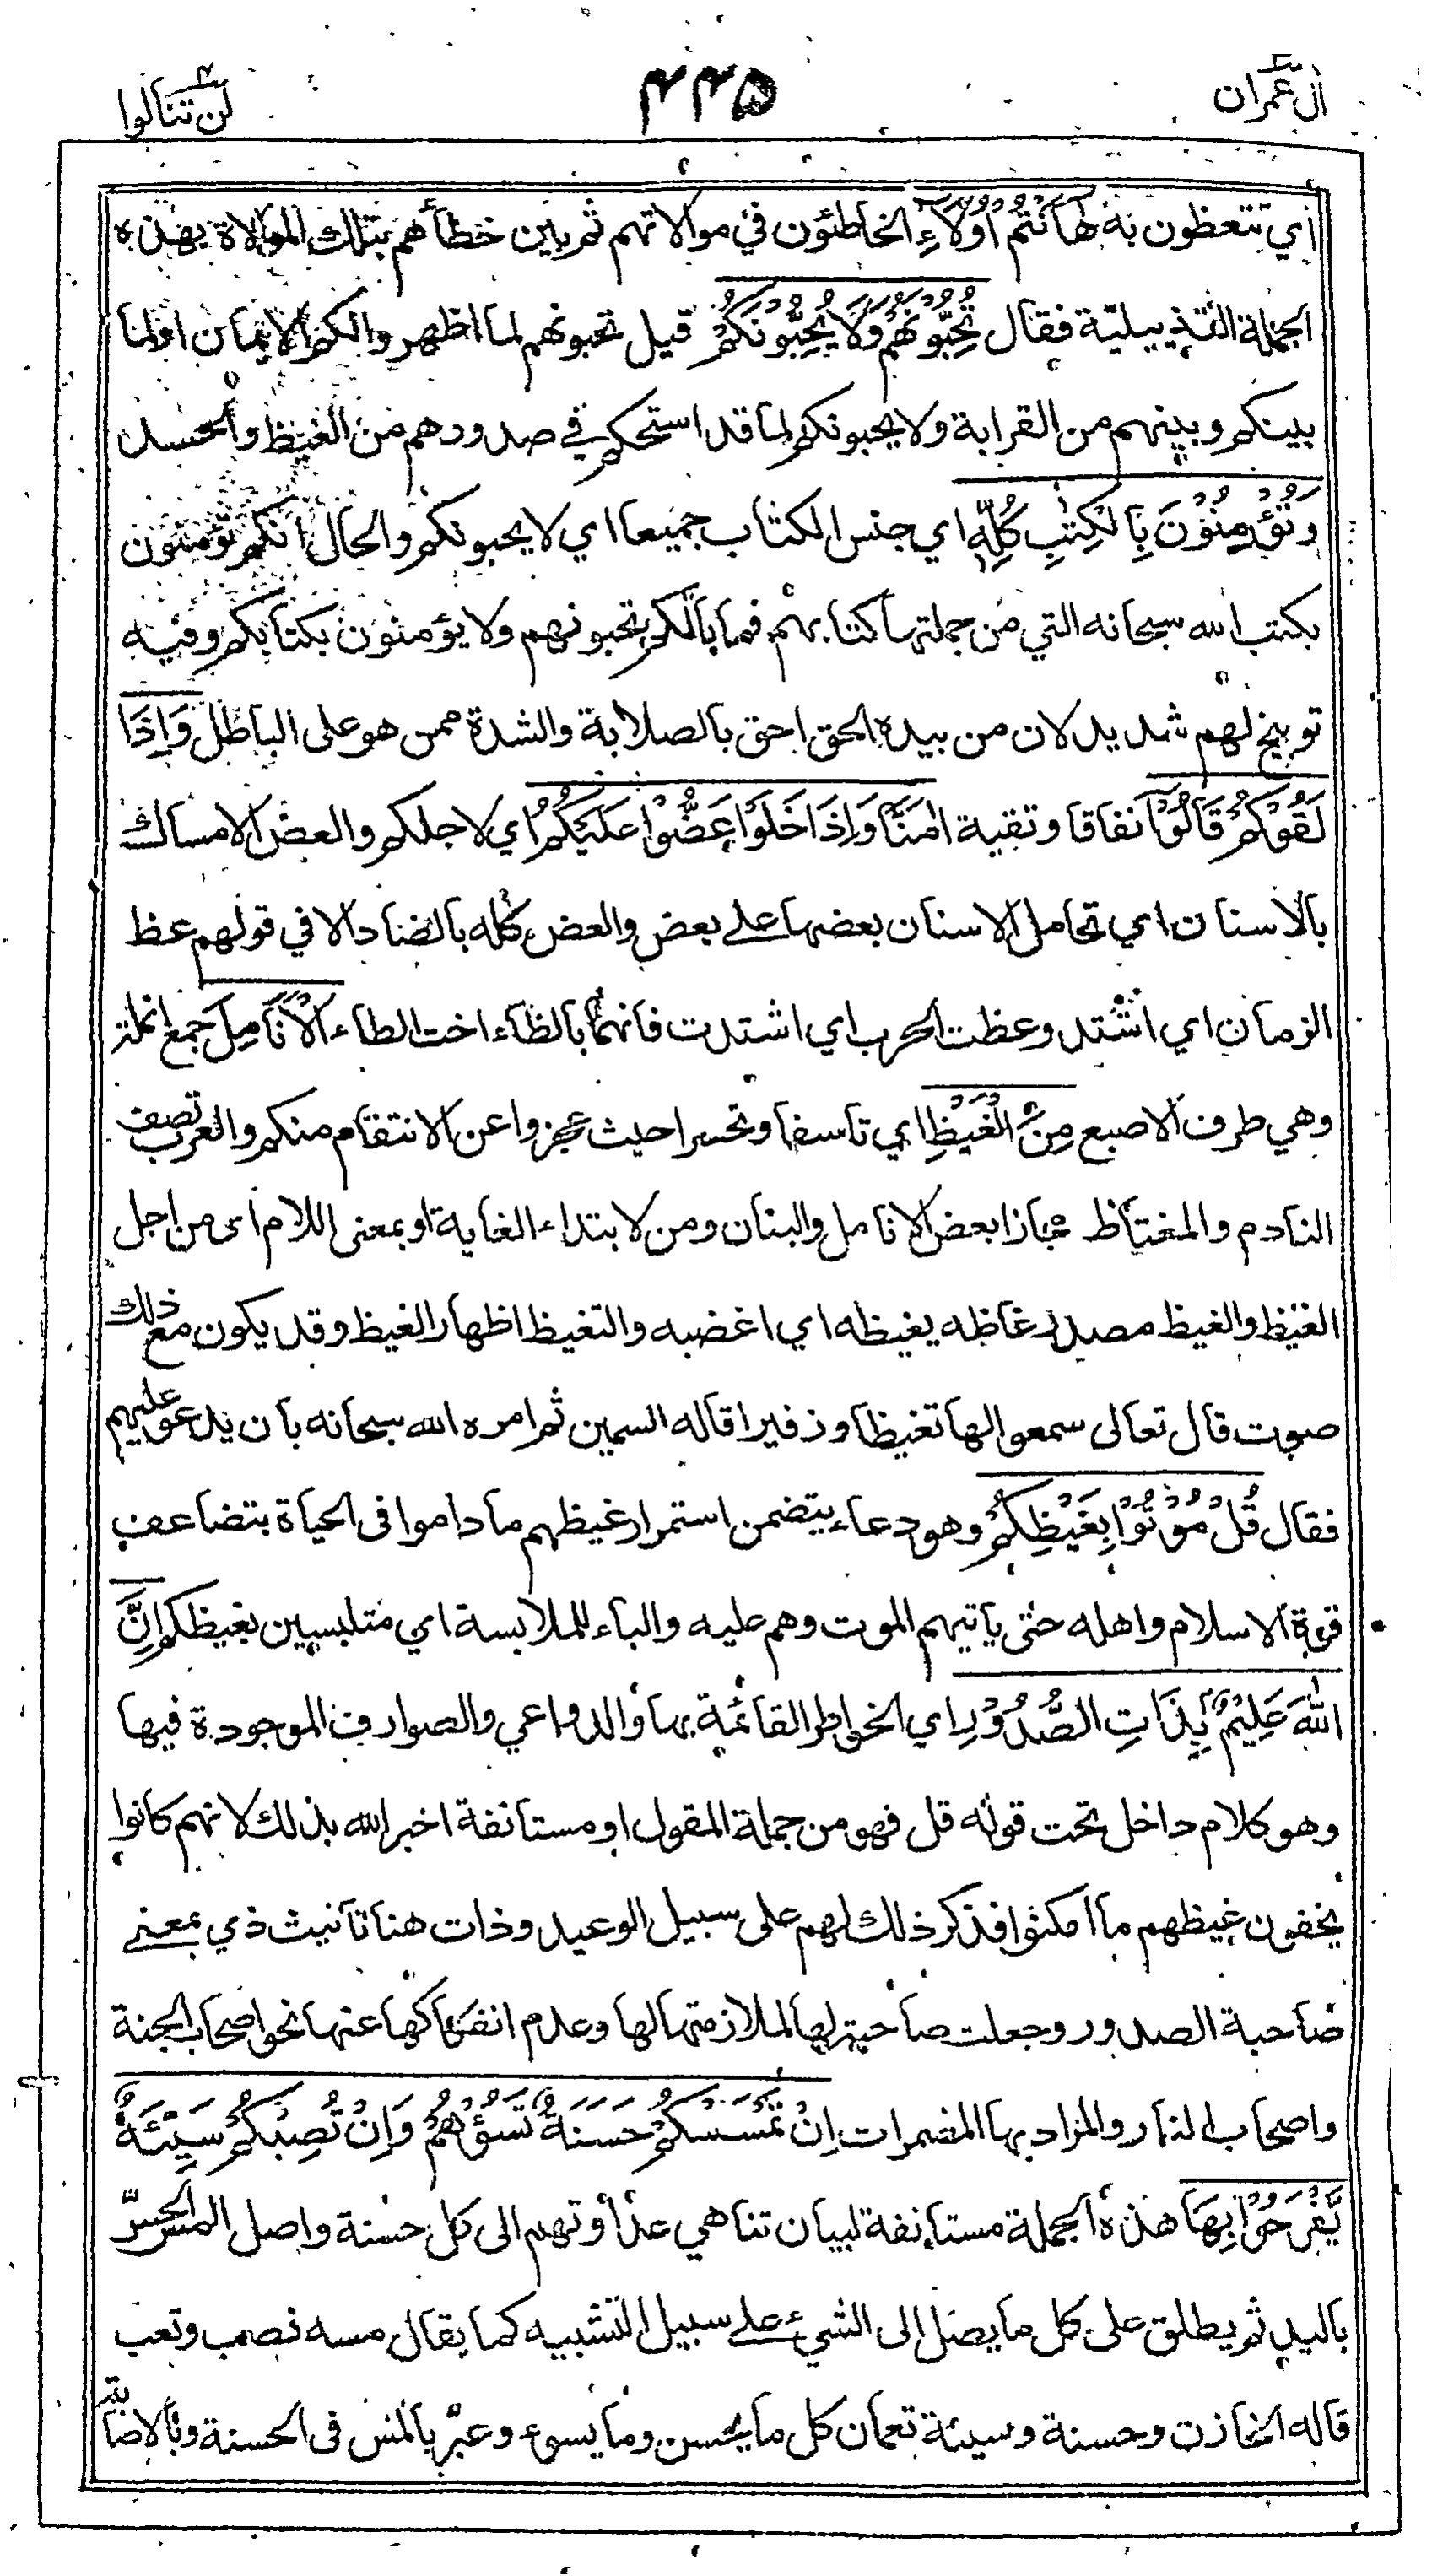 اٰل عمران
٤٤٥
لن تنالوا
اي تتعظون به هَآ اَنْتُمْ اُولَآءِ الخاطئون في موالاتهم ثم بين خطأهم بتلك الموالاة بهذه
الجملة التذييلية فقال تُحِبُّوْنَهُمْ وَلَا يُحِبُّوْنَكُمْ قيل تحبونهم لما اظهر والكم الايمان اولما
بينكم وبينهم من القرابة ولا يحبونكم لما قد استحكم في صدورهم من الغيظ والحسد
وَتُؤْمِنُوْنَ بِالْكِتٰبِ كُلِّهٖ اي جنس الكتاب جميعا اي لا يحبونكم والحال انكم تؤمنون
بكتب الله سبحانه التي من جملتها كتابهم فما بالكم تحبونهم ولا يؤمنون بكتابكم وفيه
توبيخ لهم شديد لان من بيده الحق احق بالصلابة والشدة ممن هو على الباطل وَاِذَا
لَقُوْكُمْ قَالُوْٓا نفاقا وتقية اٰمَنَّا وَاِذَا خَلَوْا عَضُّوْا عَلَيْكُمُ اي لاجلكم والعض الامساك
بالاسنان اي تحامل الاسنان بعضها علے بعض والعض كله بالضاد الا في قولهم عظ
الزمان اي اشتد وعظت الحرب اي اشتدت فانهما بالظاء اخت الطاء الْاَنَامِلَ جمع انملة
وهي طرف الاصبع مِنَ الْغَيْظِ اي تأسفا وتحسرا حيث عجزوا عن الانتقام منكم والعرب تصف
النادم والمغتاظ مجازا بعض الانامل والبنان ومن لابتداء الغاية او بمعنى اللام اى من اجل
الغيظ والغيظ مصدر غاظه يغيظه اي اغضبه والتغيظ اظهار الغيظ وقد يكون مع ذلك
صوت قال تعالى سمعوا لها تغيظا وزفيرا قاله السمين ثم امره الله سبحانه بان يدعو عليهم
فقال قُلْ مُوْتُوْا بِغَيْظِكُمْ وهو دعاء يتضمن استمرار غيظهم ما داموا فى الحياة بتضاعف
قوة الاسلام واهله حتى ياتيهم الموت وهم عليه والباء للملابسة اي متلبسين بغيظكم اِنَّ
اللّٰهَ عَلِيْمٌۢ بِذَاتِ الصُّدُوْرِ اي الخواطر القائمة بها والدواعي والصوارف الموجودة فيها
وهو كلام داخل تحت قوله قل فهو من جملة المقول او مستانفة اخبر الله بذلك لانهم كانوا
يخفون غيظهم ما امكنوا فذكر ذلك لهم على سبيل الوعيد وذات هنا تأنيث ذي بمعنے
صاحبة الصدور وجعلت صاحبة لها لملازمتها لها وعدم انفكاكها عنها نحو اصحاب الجنة
واصحاب النار والمراد بها المضمرات اِنْ تَمْسَسْكُمْ حَسَنَةٌ تَسُؤْهُمْ وَاِنْ تُصِبْكُمْ سَيِّئَةٌ
يَّفْرَحُوْا بِهَا هذه الجملة مستانفة لبيان تناهي عداوتهم الى كل حسنة واصل المس الجسّ
باليد ثم يطلق على كل ما يصل الى الشيء علے سبيل التشبيه كما يقال مسه نصب وتعب
قاله الخازن وحسنة وسيئة تعمان كل ما يحسن وما يسوء وعبّر بالمس فى الحسنة وبالاصابة